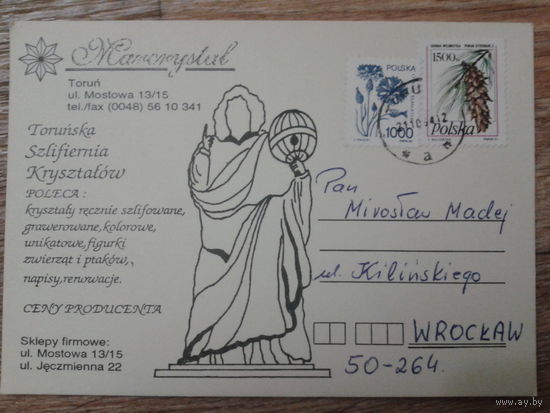 Mancrystal
Toruń
ul. Mostowa 13/15
tel./fax (0048) 56 10 341
Toruńska
Szlifiernia
Kryształów
POLECA :
kryształy ręcznie szlifowane,
grawerowane,kolorowe,
unikatowe,figurki
zwierząt i ptaków,
napisy,renowacje.
CENY PRODUCENTA
Sklepy firmowe:
ul. Mostowa 13/15
ul. Jęczmienna 22
POLSKA
1000
1500
Polska
a
Pan
Mirosław Madej
ul. Kilińskiego
WROCŁAW
50-264.
www.ay.by